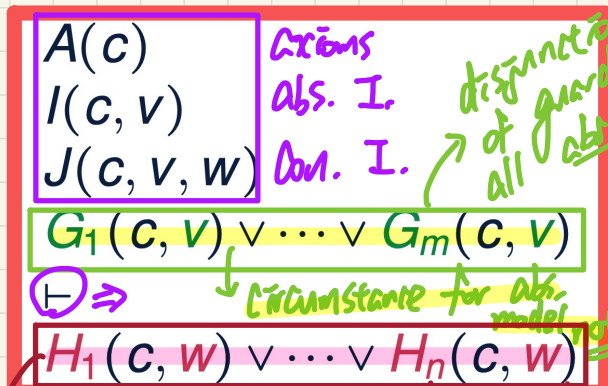 A(c) axioms
I(c, v) abs. I.
J(c, v, w) Con. I.
disjunctio
of guar
all abs
G₁(c, v) ∨ ··· ∨ Gₘ(c, v)
⊢ ⇒ circumstance for abs.
model no
H₁(c, w) ∨ ··· ∨ Hₙ(c, w)